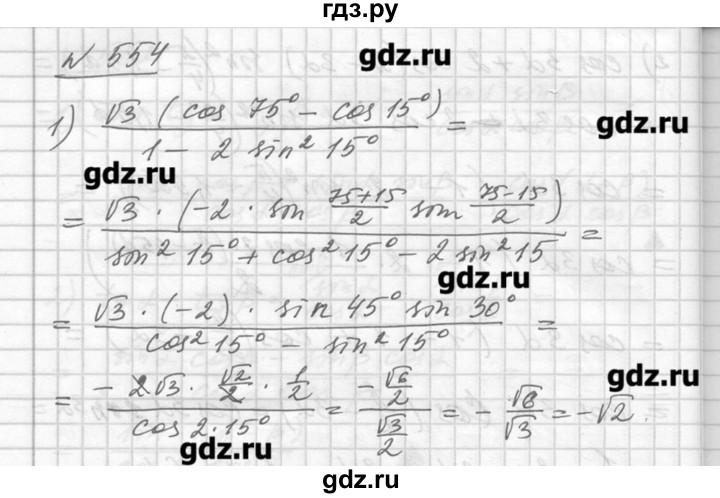 гдз.ру
№ 554
gdz.ru
1) √3 (cos 75° − cos 15°) / 1 − 2 sin² 15° =
gdz.ru
gdz.ru
= √3 · (−2 · sin 75+15/2 sin 75−15/2) / sin² 15° + cos² 15° − 2 sin² 15 =
gdz.ru
= √3 · (−2) · sin 45° sin 30° / cos² 15° − sin² 15° =
gdz.ru
= −2√3 · √2/2 · 1/2 / cos 2·15° = −√6/2 / √3/2 = − √6/√3 = −√2.
gdz.ru
gdz.ru